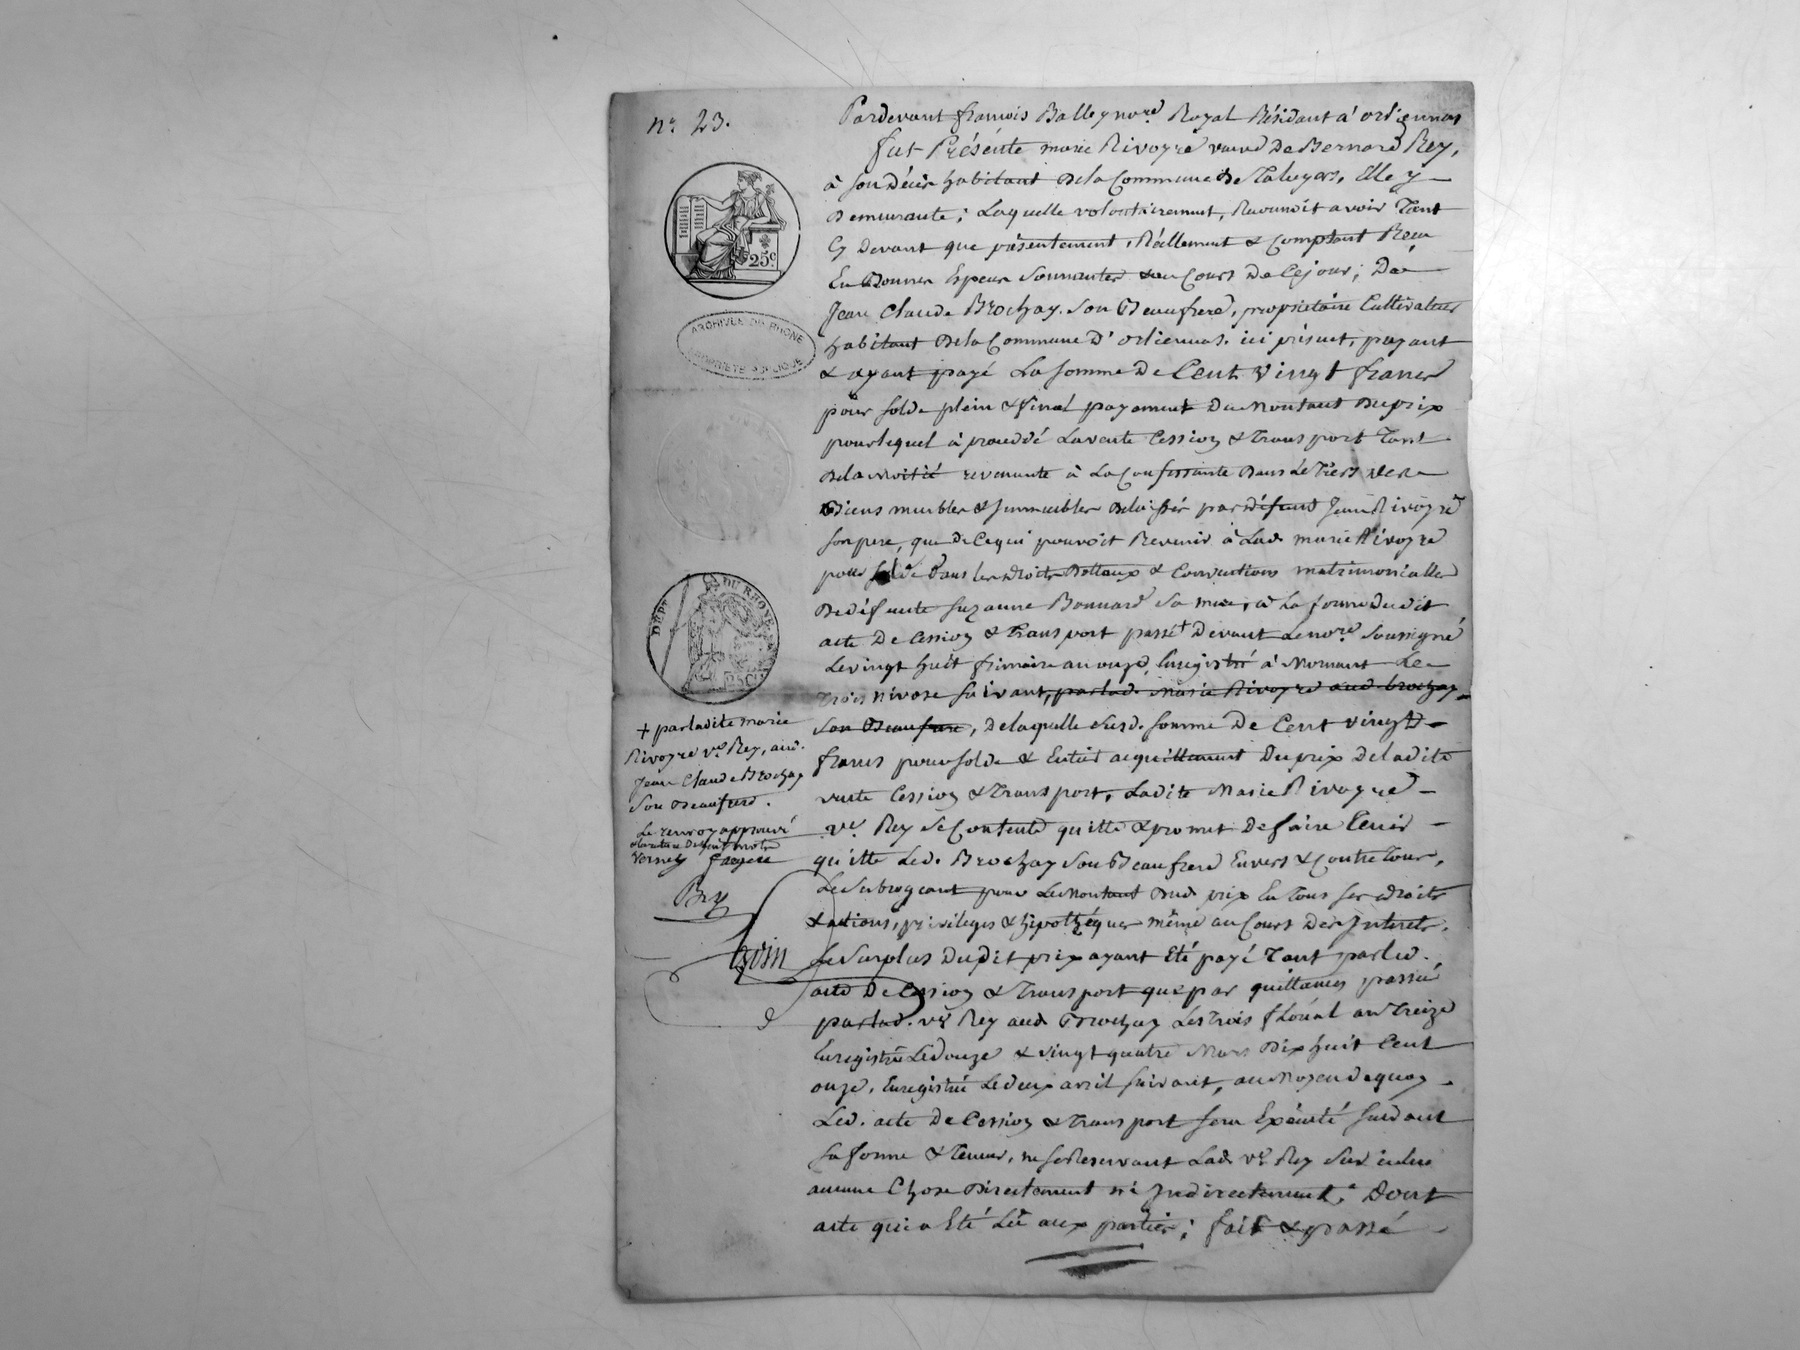 n.º 23.
Pardevant françois Balley no.re Royal Résidant à orliennas
fut Présente marie Rivoyre veuve De Bernard Rey,
à son Décès habitant Dela Commune De Taluyers, Elle y
Demeurante; Laquelle volontairement, Reconnoit avoir Tant
Cy Devant que présentement, Réellement & Comptant Reçu
En Bonnes Especes Sonnantes au Cours De Cejour; De
Jean Claude Brochay Son Beaufrere, proprietaire Cultivateur
habitant Dela Commune D'orliennas. ici présent, payant
& ayant payé La Somme De Cent Vingt francs
pour Solde plein & final payement Du Montant Du prix
pour lequel à procédé La vente Cession & Transport Tant
Dela Moitié revenante à La Confessante Dans Le Tiers des
Biens meubles & Immeubles Delaissés par Défunt Jean Rivoyre
Son pere, que De Cequi pouvoit Revenir à Lad. marie Rivoyre
pour Solde Dans Les Droits Dottaux & Conventions matrimonialles
De Défunte Suzanne Bonnard Sa mere, à La forme dudit
acte De Cession & Transport passé + Devant Le no.re Soussigné
Le vingt huit frimaire an onze, Enregistré à Mornant Le
Trois nivose Suivant, par lad. Marie Rivoyre aud. brochay
Son Beaufrere, De laquelle Susd. Somme De Cent vingt
francs pour Solde & Entier acquittement Du prix De ladite
vente Cession & Transport, Ladite Marie Rivoyre
v.e Rey Se Contente quitte & promet De faire Tenir
quitte Led. Brochay Son Beaufrere Envers & Contre Tous,
Le Subrogeant pour Le Montant Dud. prix En Tous Ses Droits
& actions, privileges & hipothéques même au Cours Des Interets,
Le Surplus Dudit prix ayant Eté payé Tant par led.
acte De Cession & Transport que par quittances passées
par lad. v.e Rey aud. Brochay Les Trois floréal an Treize
Enregistré Le Douze & vingt quatre Mars Dix huit Cent
onze, Enregistré Le deux avril Suivant, au Moyen Dequoy
Led. acte De Cession & Transport Sera Exécuté Suivant
Sa forme & Teneur, ne Se Reservant Lad. v.e Rey Sur icelui
aucune Chose Directement ni Indirectement. Dont
acte qui a Eté Lu aux parties; fait & passé
25.c
ARCHIVES DU RHONE
PROPRIÉTÉ PUBLIQUE
DEPT DU RHONE
25C
+ par ladite marie
Rivoyre v.e Rey, aud.
Jean Claude Brochay
Son Beaufrere.
Le renvoy approuvé